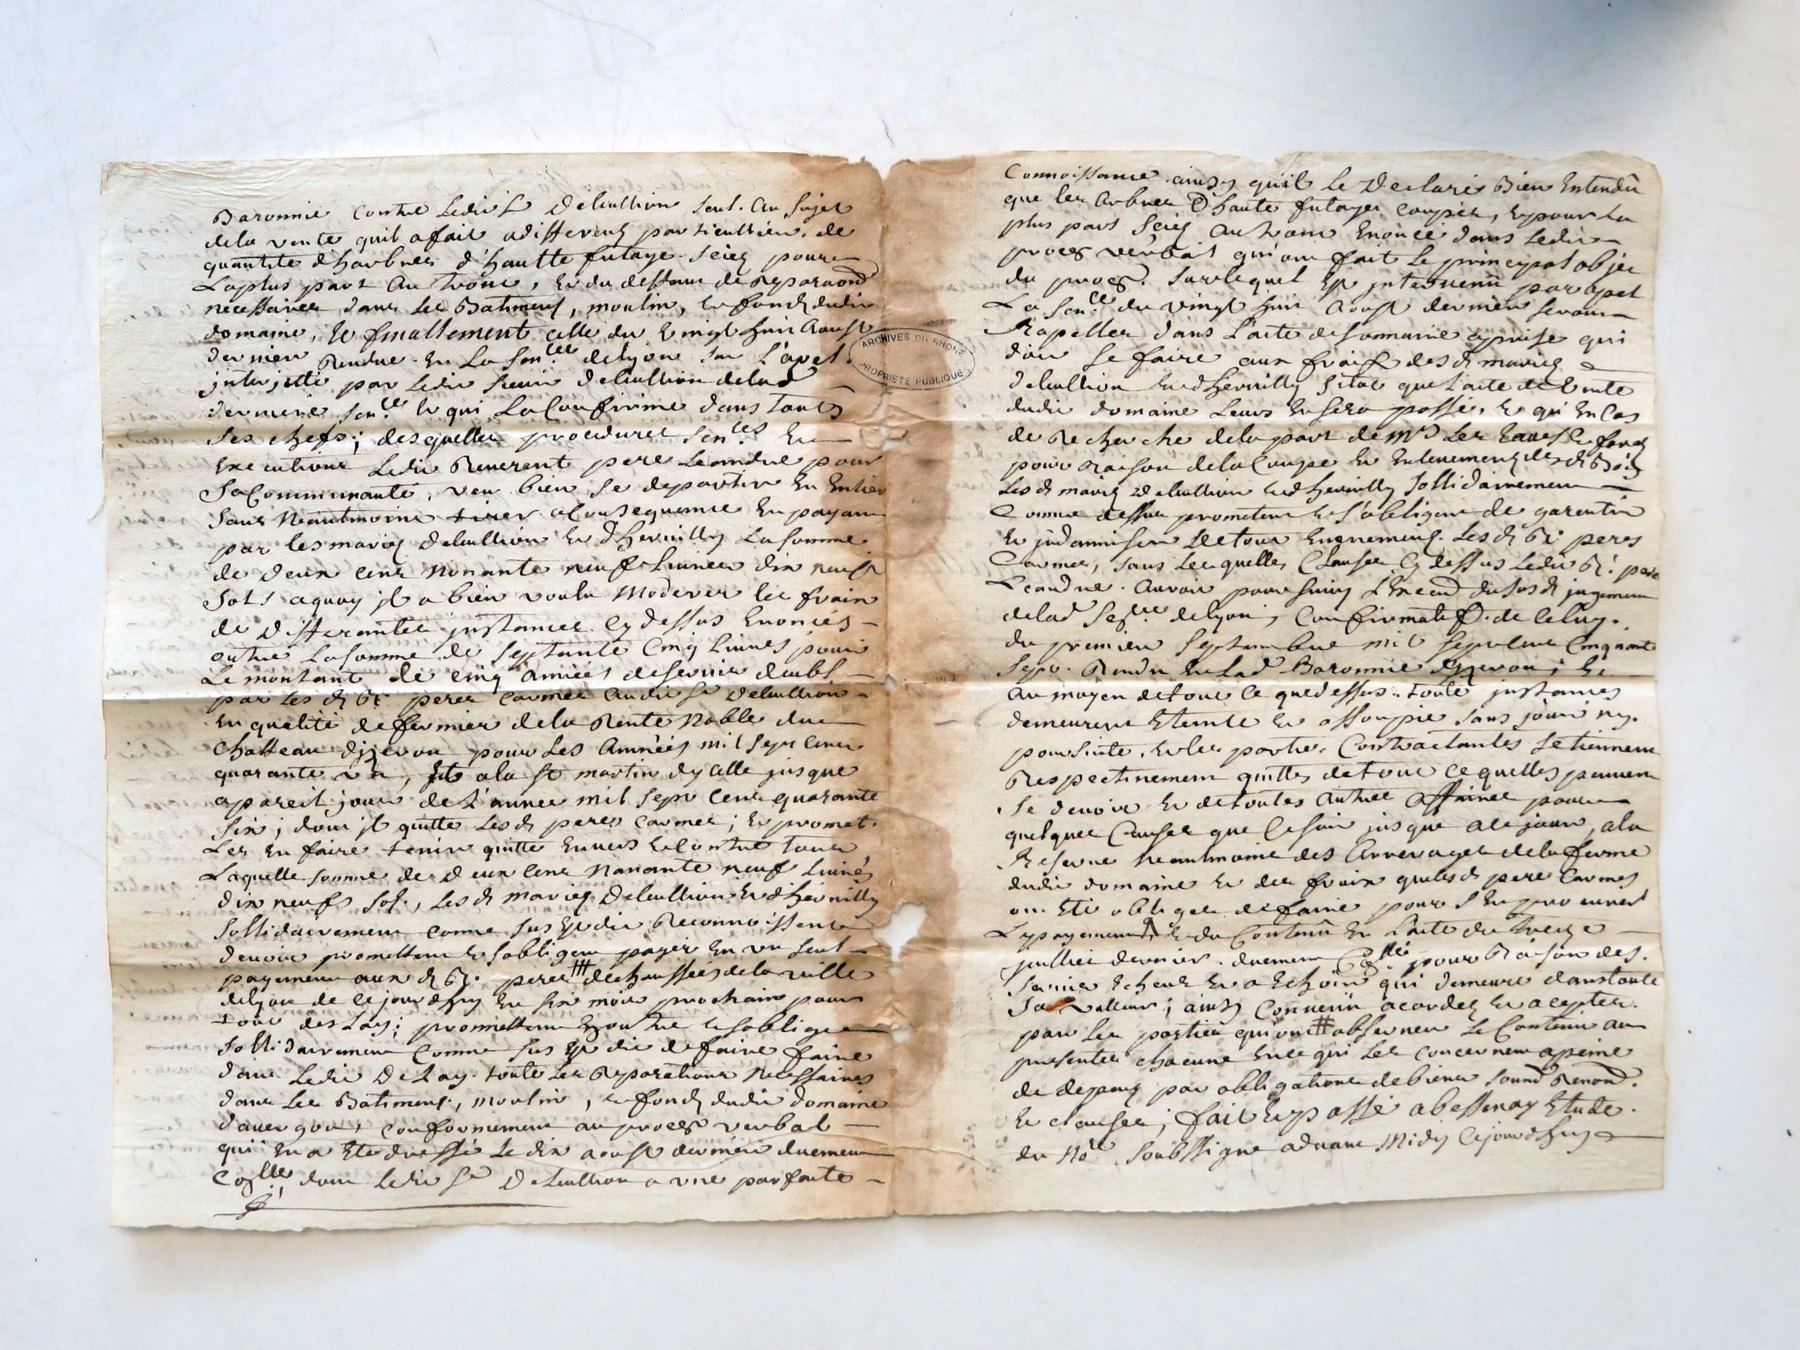 Baronnie contre ledit Sr Deleullion seul. Au sujet
dela vente quil a fait a differens particulliers. de
quantité d'harbres d'hautte futaye. sciés pour
La plus part au trone, et du deffaut de Reparaons
necessaires dans les Batimens, moulin, et fonds dudit
domaine, et finallement celle du vingt huit Aoust
dernier Rendue. En La Senee. delyon sur L'apel.
interjetté par Ledit sieur Deleullion delad
derniere senee. et qui La Confirme dans touts
ses chefs; desquelles procedures senes. et
executions Ledit Reverent pere Leandre pour
Sa Communauté, veu bien se departir en Entier
sans neantmoins tirer a Consequance en payant
par les mariés Deleullion et D'hervilly La somme
de deux Cent Nonante neuf Livres dix neuf
sols aquoy il a bien voulu Moderer les frais
de Differantes instances. Cy dessus Enoncés
outre La somme de septante Cinq Livres pour
Le montant de cinq années deservis deubs
par Les ds Rds peres Carmes audit Sr Deleullion
en qualité de fermier dela Rente Noble du
Chatteau d'yzeron pour Les années mil sept cent
quarante un, à la St martin d'icelle jusque
apareil jour de L'année mil sept Cent quarante
six; dont il quitte Lesds peres Carmes; et promet.
Les En faire tenir quitte envers et contre tous
Laquelle somme de deux Cent Nonante neuf Livres
dix neufs sols, Lesds mariés Deleullion et D'hervilly
sollidairement comme sus Est dit Reconnoissent
devoir promettent et sobligent payer En un seul
payement aux ds Rds. peres # dechaussées de la ville
delyon de ce jourd'huy En six mois prochain pour
tout delay; promettent En outre et sobligent
sollidairement comme sus Est dit de faire faire
dans Ledit Delay. toute Les Reparations Necessaires
dans Les Batimens, moulin, et fonds dudit domaine
conformement au proces verbal
qui En a Eté dressé Le dix aoust dernier duement
Collé, dont Ledit Sr Deleullion a une parfaite
Connoissance ainsy qu'il Le Declare Bien Entendu
que les arbres d'haute futaye. coupés, et pour La
plus part sciés au trone Enoncé dans Ledit
proces verbail qu'ont fait Le principal objet
du proces. surlequel Est intervenu par apel
La Sence. du vingt huit Aoust dernier seront
Rapellés dans L'acte de sommaire aprise qui
doit se faire aux frais desds mariés
Deleullion et d'hervilly sitot que L'acte de vente
dudit domaine Leurs En sera passé, et qu'En Cas
de Recherche dela part de Mrs Les Eaux et forets
pour Raison dela Coupe et Enlevement desds Bois
Lesds mariés Deleullion et d'hervilly sollidairement
Comme dessus promettent et s'obligent de garentir
et indamniser de tout Evenement. Lesds Rds peres
Carmes, sans Lesquelles Clauses Cy dessus Ledit Rd. pere
Leandre. auroit poursuivy L'Exeon dusds jugement
delad senee delyon, Confirmatif. de Celuy.
du premier septembre mil sept cent Cinquante
sept. Rendu en Lad Baronnie d'yzeron; et
au moyen detout ce quedessus. toute instances
demeurent Eteinte et assoupie sans jour ny.
poursuite, et les parties. Contractantes se tiennent
Respectivement quittes detout ce quelles peuvent
se devoir et detoutes autres affaires pour
quelques Causes que Ce soit jusque a ce jour, ala
Reserve neantmoins des arrerages dela ferme
dudit domaine et des frais que lesds peres Carmes
ont Eté obligés de faire pour s'En procurer
Le payement et du Contenu en L'acte du treize
juillet dernier. duement Collé pour Raison des.
servis Echeus et a Echoir qui demeure dans toute
sa valleur; ainsy Convenu acordez et acceptez.
par Les parties qui ont # observer Le Contenu au
presentes chacune en ce qui Les concernent a peine
de depens par obligations de biens soumd Renond.
et clauses; fait et passé a bessenay Etude.
du Nore soussigné advant Midy cejourd'huy
ARCHIVES DU RHONE
PROPRIETE PUBLIQUE